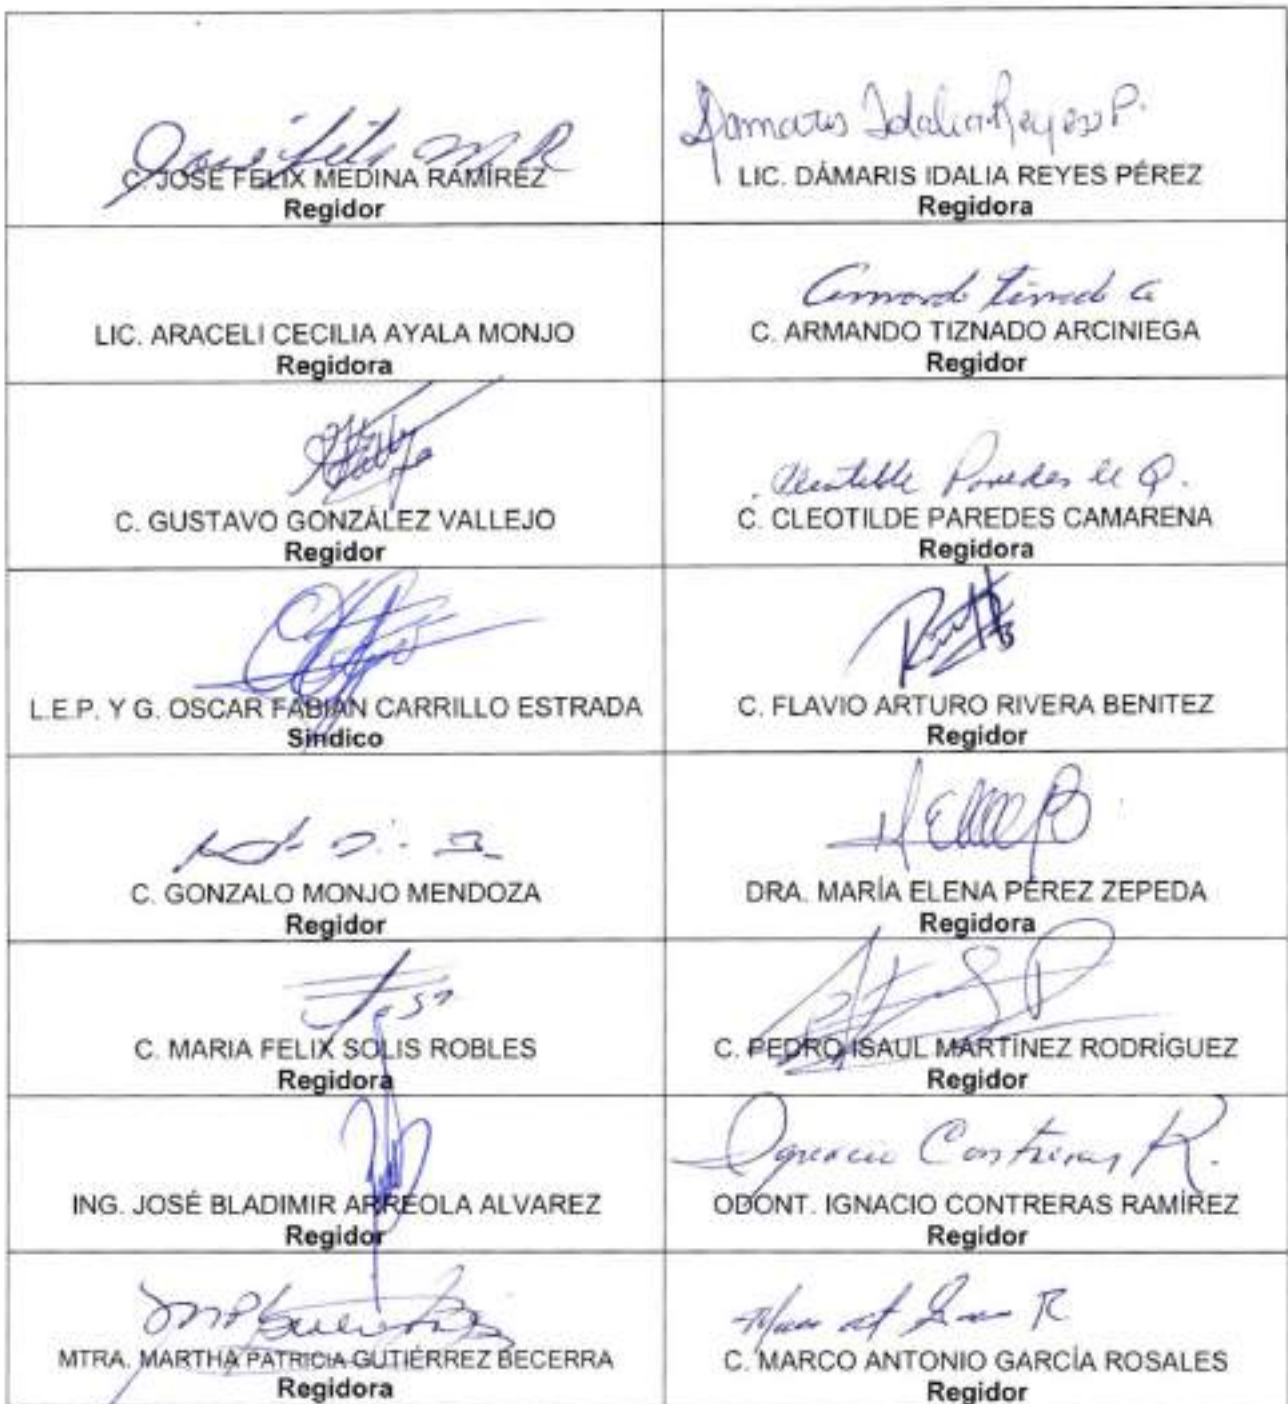 Damaris Idalia Reyes P.
C. JOSÉ FELIX MEDINA RAMÍREZ
Regidor
LIC. DÁMARIS IDALIA REYES PÉREZ
Regidora
LIC. ARACELI CECILIA AYALA MONJO
Regidora
C. ARMANDO TIZNADO ARCINIEGA
Regidor
C. GUSTAVO GONZÁLEZ VALLEJO
Regidor
C. CLEOTILDE PAREDES CAMARENA
Regidora
L.E.P. Y G. OSCAR FABIAN CARRILLO ESTRADA
Sindico
C. FLAVIO ARTURO RIVERA BENITEZ
Regidor
C. GONZALO MONJO MENDOZA
Regidor
DRA. MARÍA ELENA PÉREZ ZEPEDA
Regidora
C. MARIA FELIX SOLIS ROBLES
Regidora
C. PEDRO ISAUL MARTÍNEZ RODRÍGUEZ
Regidor
Ignacio Contreras R.
ING. JOSÉ BLADIMIR ARREOLA ALVAREZ
Regidor
ODONT. IGNACIO CONTRERAS RAMÍREZ
Regidor
MTRA. MARTHA PATRICIA GUTIÉRREZ BECERRA
Regidora
C. MARCO ANTONIO GARCÍA ROSALES
Regidor